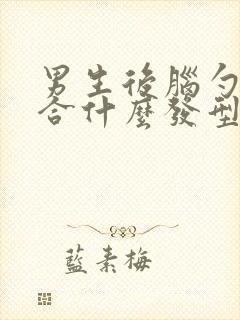 男生後腦勺
合什麼發型
藍素梅